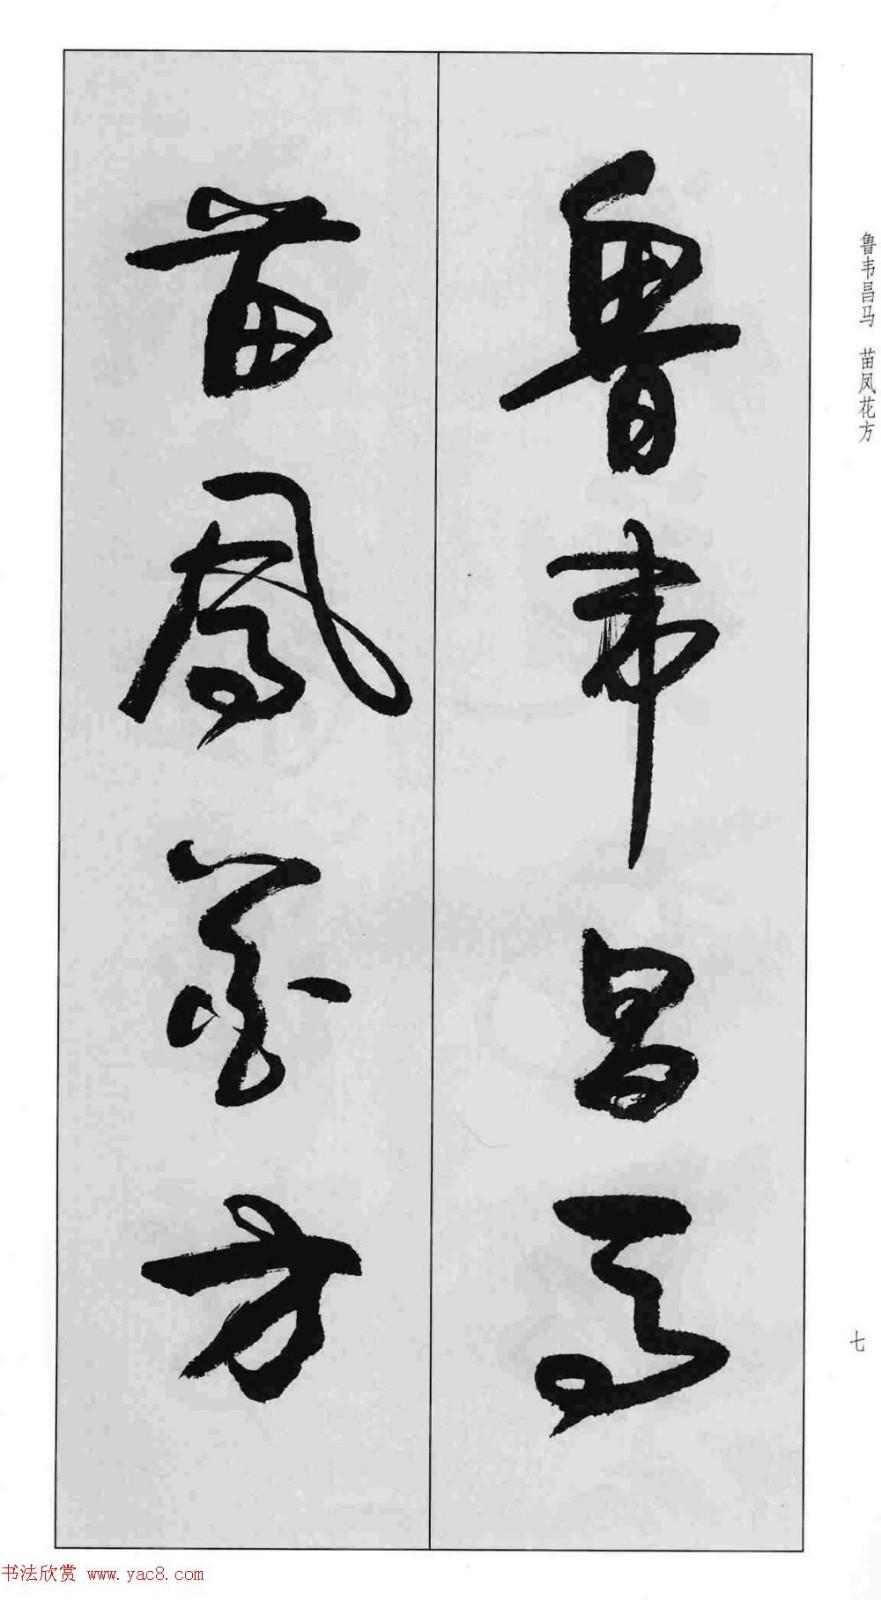 鲁韦昌马
苗凤花方
鲁韦昌马 苗凤花方
七
书法欣赏 www.yac8.com